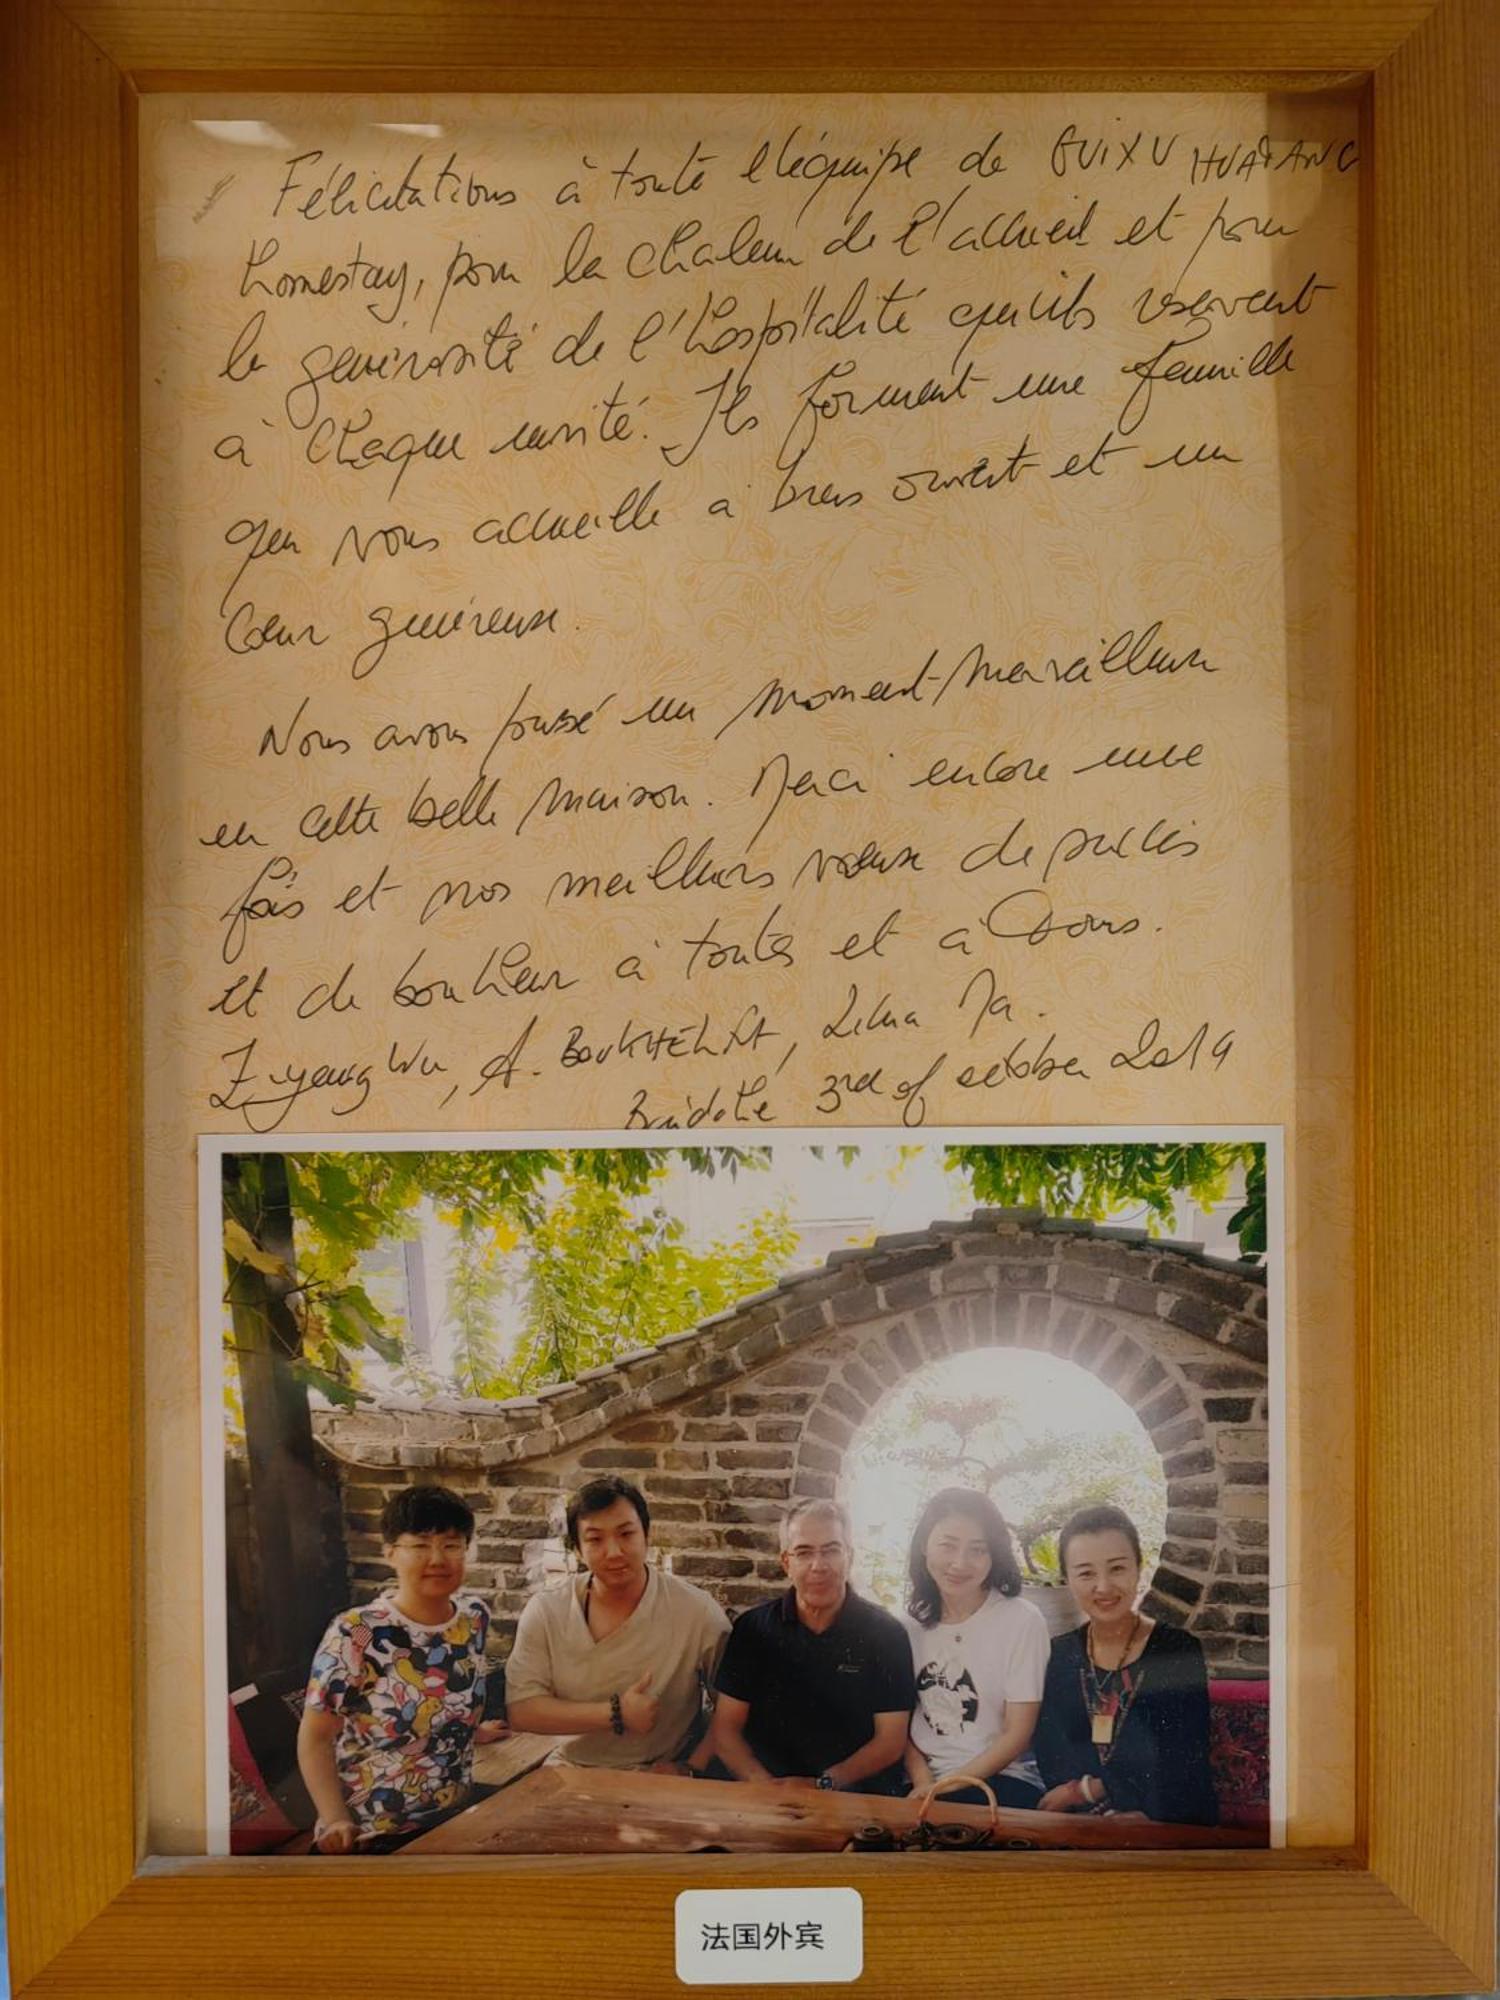 Félicitations à toute l'équipe de GUIXU HUATANG
homestay, pour la chaleur de l'accueil et pour
la générosité de l'hospitalité qu'ils réservent
à chaque invité. Ils forment une famille
qui vous accueille à bras ouvert et un
Cœur généreux.
Nous avons passé un moment merveilleux
en cette belle maison. Merci encore une
fois et nos meilleurs vœux de succès
et de bonheur à toutes et à tous.
Ziyang Wu, A. BOUKHELIFA, Lihua Ma.
3rd of october 2019
法国外宾